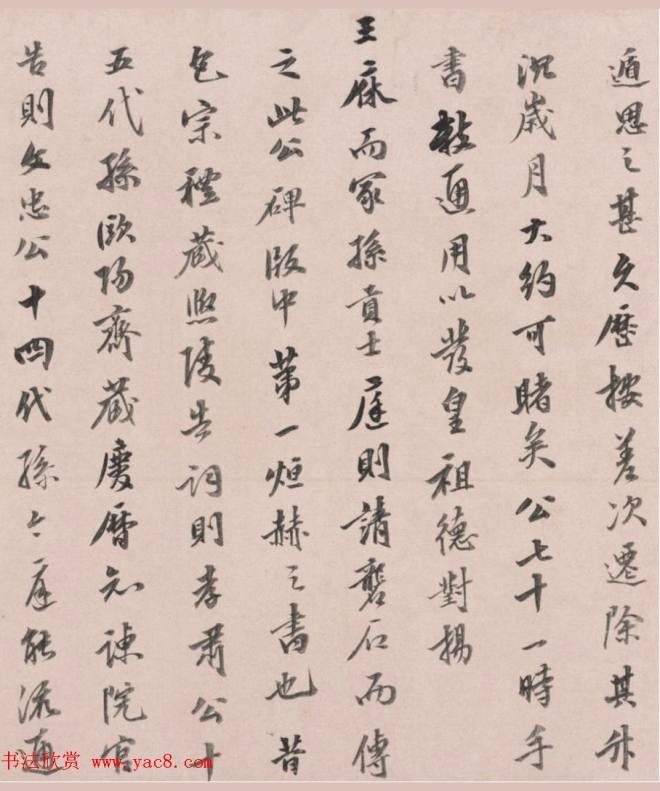 遁思之甚久歷按差次遷除其升
沉歲月大約可睹矣公七十一時手
書數通用以發皇祖德對揚
王庥而冢孫貢士庭則請礱石而傳
之此公碑版中第一烜赫之書也昔
包宗禮藏熙陵告詞則孝肅公十
五代孫歐陽齊藏慶曆知諫院官
告則文忠公十四代孫今庭能流通
书法欣赏 www.yac8.com